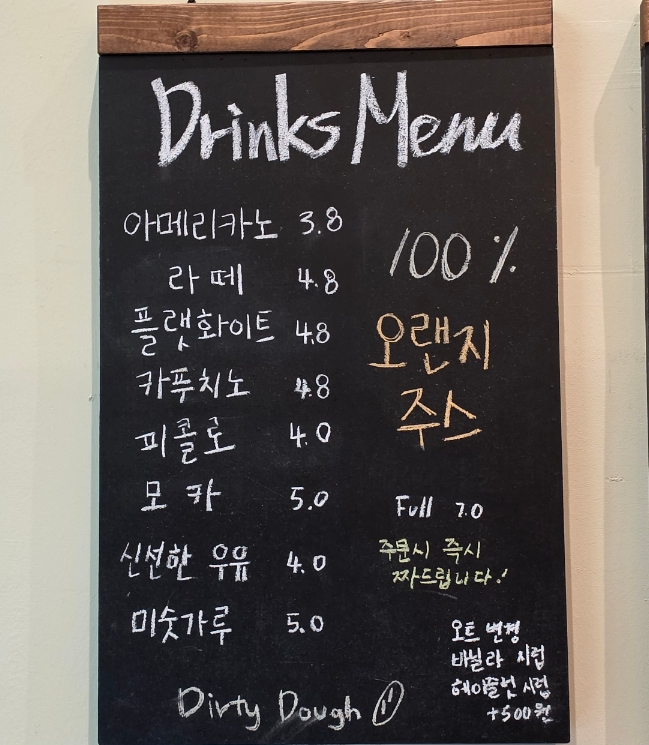 Drinks Menu
아메리카노 3.8
라떼 4.8
플랫화이트 4.8
카푸치노 4.8
피콜로 4.0
모카 5.0
신선한 우유 4.0
미숫가루 5.0
100%
오랜지
주스
Full 7.0
주문시 즉시
짜드립니다!
오트 변경
바닐라 시럽
헤이즐넛 시럽
+500원
Dirty Dough